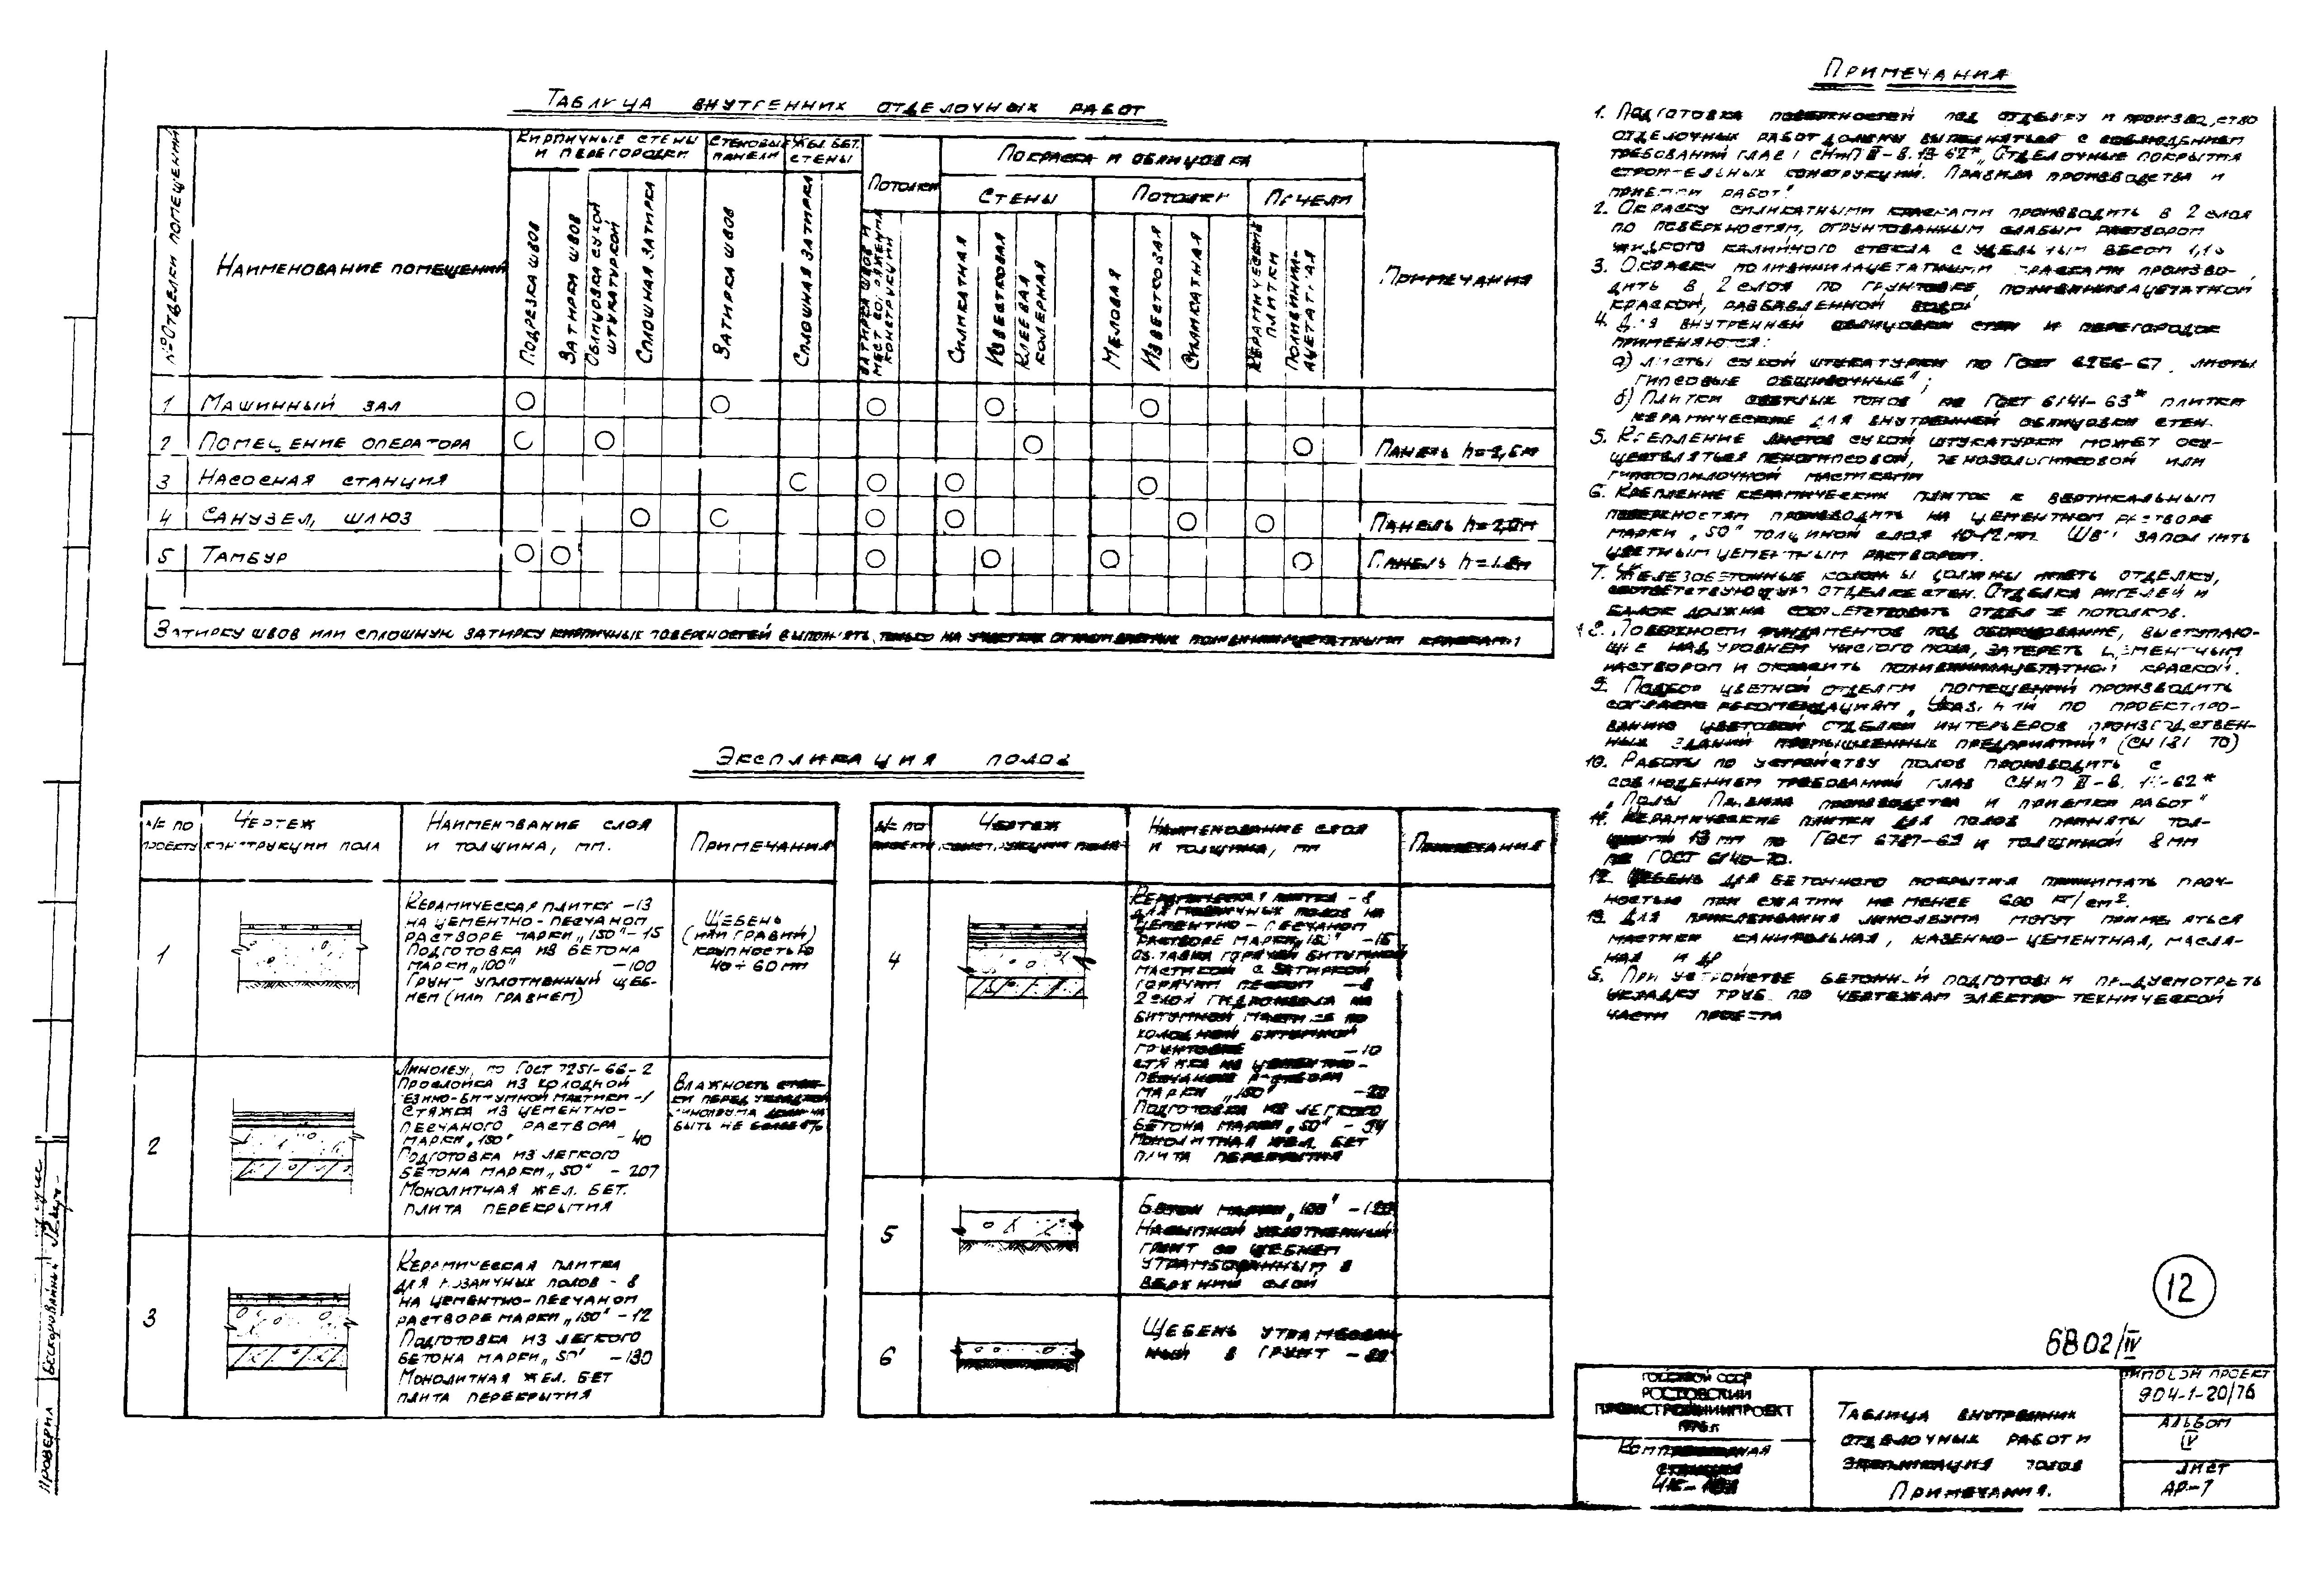 Таблица внутренних отделочных работ
№ отделки помещений
Наименование помещений
Кирпичные стены и перегородки
Стеновые панели
Жел. бет. стены
Потолки
Покраска и облицовка
Стены
Потолки
Панели
Примечания
Подрезка швов
Затирка швов
Облицовка сухой штукатуркой
Сплошная затирка
Затирка швов
Сплошная затирка
Затирка швов и мест сопряжения конструкций
Силикатная
Известковая
Клеевая колерная
Меловая
Известковая
Силикатная
Керамические плитки
Поливинилацетатная
1 Машинный зал
2 Помещение оператора
3 Насосная станция
4 Санузел, шлюз Панель h=2,0м
5 Тамбур Панель h=1.8м
Затирку швов или сплошную затирку кирпичных поверхностей выполнять только на участках поливинилацетатными красками
Экспликация полов
№ по проекту
Чертеж конструкции пола
Наименование слоя и толщина, мм.
Примечания
1
Керамическая плитка -13
на цементно-песчаном
растворе марки „150" -15
Подготовка из бетона
марки „100" -100
Грунт уплотненный щеб-
нем (или гравием)
Щебень
(или гравий)
крупностью
40÷60мм
2
Линолеум по ГОСТ 7251-66-2
Прослойка из холодной
резино-битумной мастики -1
Стяжка из цементно-
песчаного раствора
марки „150" -40
Подготовка из легкого
бетона марки „50" -207
Монолитная жел. бет.
плита перекрытия
Влажность стяж-
ки перед укладкой
линолеума должна
быть не более
3
Керамическая плитка
для мозаичных полов - 8
на цементно-песчаном
растворе марки „150" -12
Подготовка из легкого
бетона марки „50" -130
Монолитная жел. бет
плита перекрытия
№ по проекту
Чертеж конструкции пола
Наименование слоя и толщина, мм
Примечания
4
Керамическая плитка -8
для мозаичных полов на
цементно-песчаном
растворе марки „150" -15
горячей битумной
мастикой с затиркой
горячим песком -8
2 слоя гидроизола на
битумной мастике по
холодной битумной
грунтовке -10
Стяжка из цементно-
песчаного раствора
марки „150" -20
Подготовка из легкого
бетона марки „50" - 94
Монолитная жел. бет
плита перекрытия
5
Бетон марки „100"
Насыпной уплотненный
грунт со щебнем
утрамбованным в
верхний слой
6
Щебень утрамбован-
ный в грунт
Примечания
1. Подготовка поверхностей под отделку и производство
отделочных работ должны выполняться с соблюдением
требований главы СНиП III-В.13-62* „Отделочные покрытия
строительных конструкций. Правила производства и
приемки работ".
2. Окраску силикатными красками производить в 2 слоя
по поверхностям, огрунтованным слабым раствором
жидкого калийного стекла с удельным весом
3. Окраску поливинилацетатными красками произво-
дить в 2 слоя по грунтовке поливинилацетатной
краской, разбавленной водой
4. Для внутренней облицовки стен и перегородок
применяются:
а) листы сухой штукатурки по ГОСТ 6266-67 „листы
гипсовые обшивочные";
б) Плитки светлых тонов по ГОСТ 6141-63* плитки
керамические для внутренней облицовки стен.
5. Крепление листов сухой штукатурки может осу-
ществляться пеногипсовой, или
гипсоопилочной мастиками
6. Крепление керамических плиток к вертикальным
поверхностям производить на цементном растворе
марки „50" толщиной слоя 10-12мм. Швы заполнить
цветным цементным раствором.
7. Железобетонные колонны должны иметь отделку,
соответствующую отделке стен. Отделка ригелей и
балок должна соответствовать отделке потолков.
8. Поверхности фундаментов под оборудование, выступаю-
щие над уровнем чистого пола, затереть цементным
раствором и окрасить поливинилацетатной краской.
9. Подбор цветной отделки помещений производить
согласно рекомендациям „Указаний по проектиро-
ванию цветовой отделки интерьеров производствен-
ных зданий промышленных предприятий" (СН 181-70)
10. Работы по устройству полов производить с
соблюдением требований глав СНиП III-В.
„Полы Правила производства и приемки работ"
11. Керамические плитки для полов приняты тол-
щиной 13 мм по ГОСТ 6787-69 и толщиной 8 мм
по ГОСТ 6140-70.
12. Щебень для бетонного покрытия принимать проч-
ностью при сжатии не менее 600 кг/см².
13. Для приклеивания линолеума могут применяться
мастики канифольная, казеино-цементная, масля-
ная и др
При устройстве бетонной подготовки предусмотреть
укладку труб по чертежам электротехнической
части проекта
12
6802/IV
Госстрой СССР
Ростовский
ПРОМСТРОЙНИИПРОЕКТ
Компрессорная
станция
Таблица внутренних
отделочных работ и
экспликация полов
Примечания.
Типовой проект
904-1-20/76
Альбом
IV
Лист
АР-7
Проверил
Бескоровайный